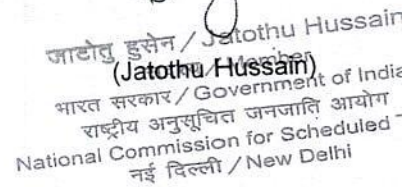 जाटोतु हुसेन / Jatothu Hussain
(Jatothu Hussain)
/ Member
भारत सरकार / Government of India
राष्ट्रीय अनुसूचित जनजाति आयोग
National Commission for Scheduled
नई दिल्ली / New Delhi